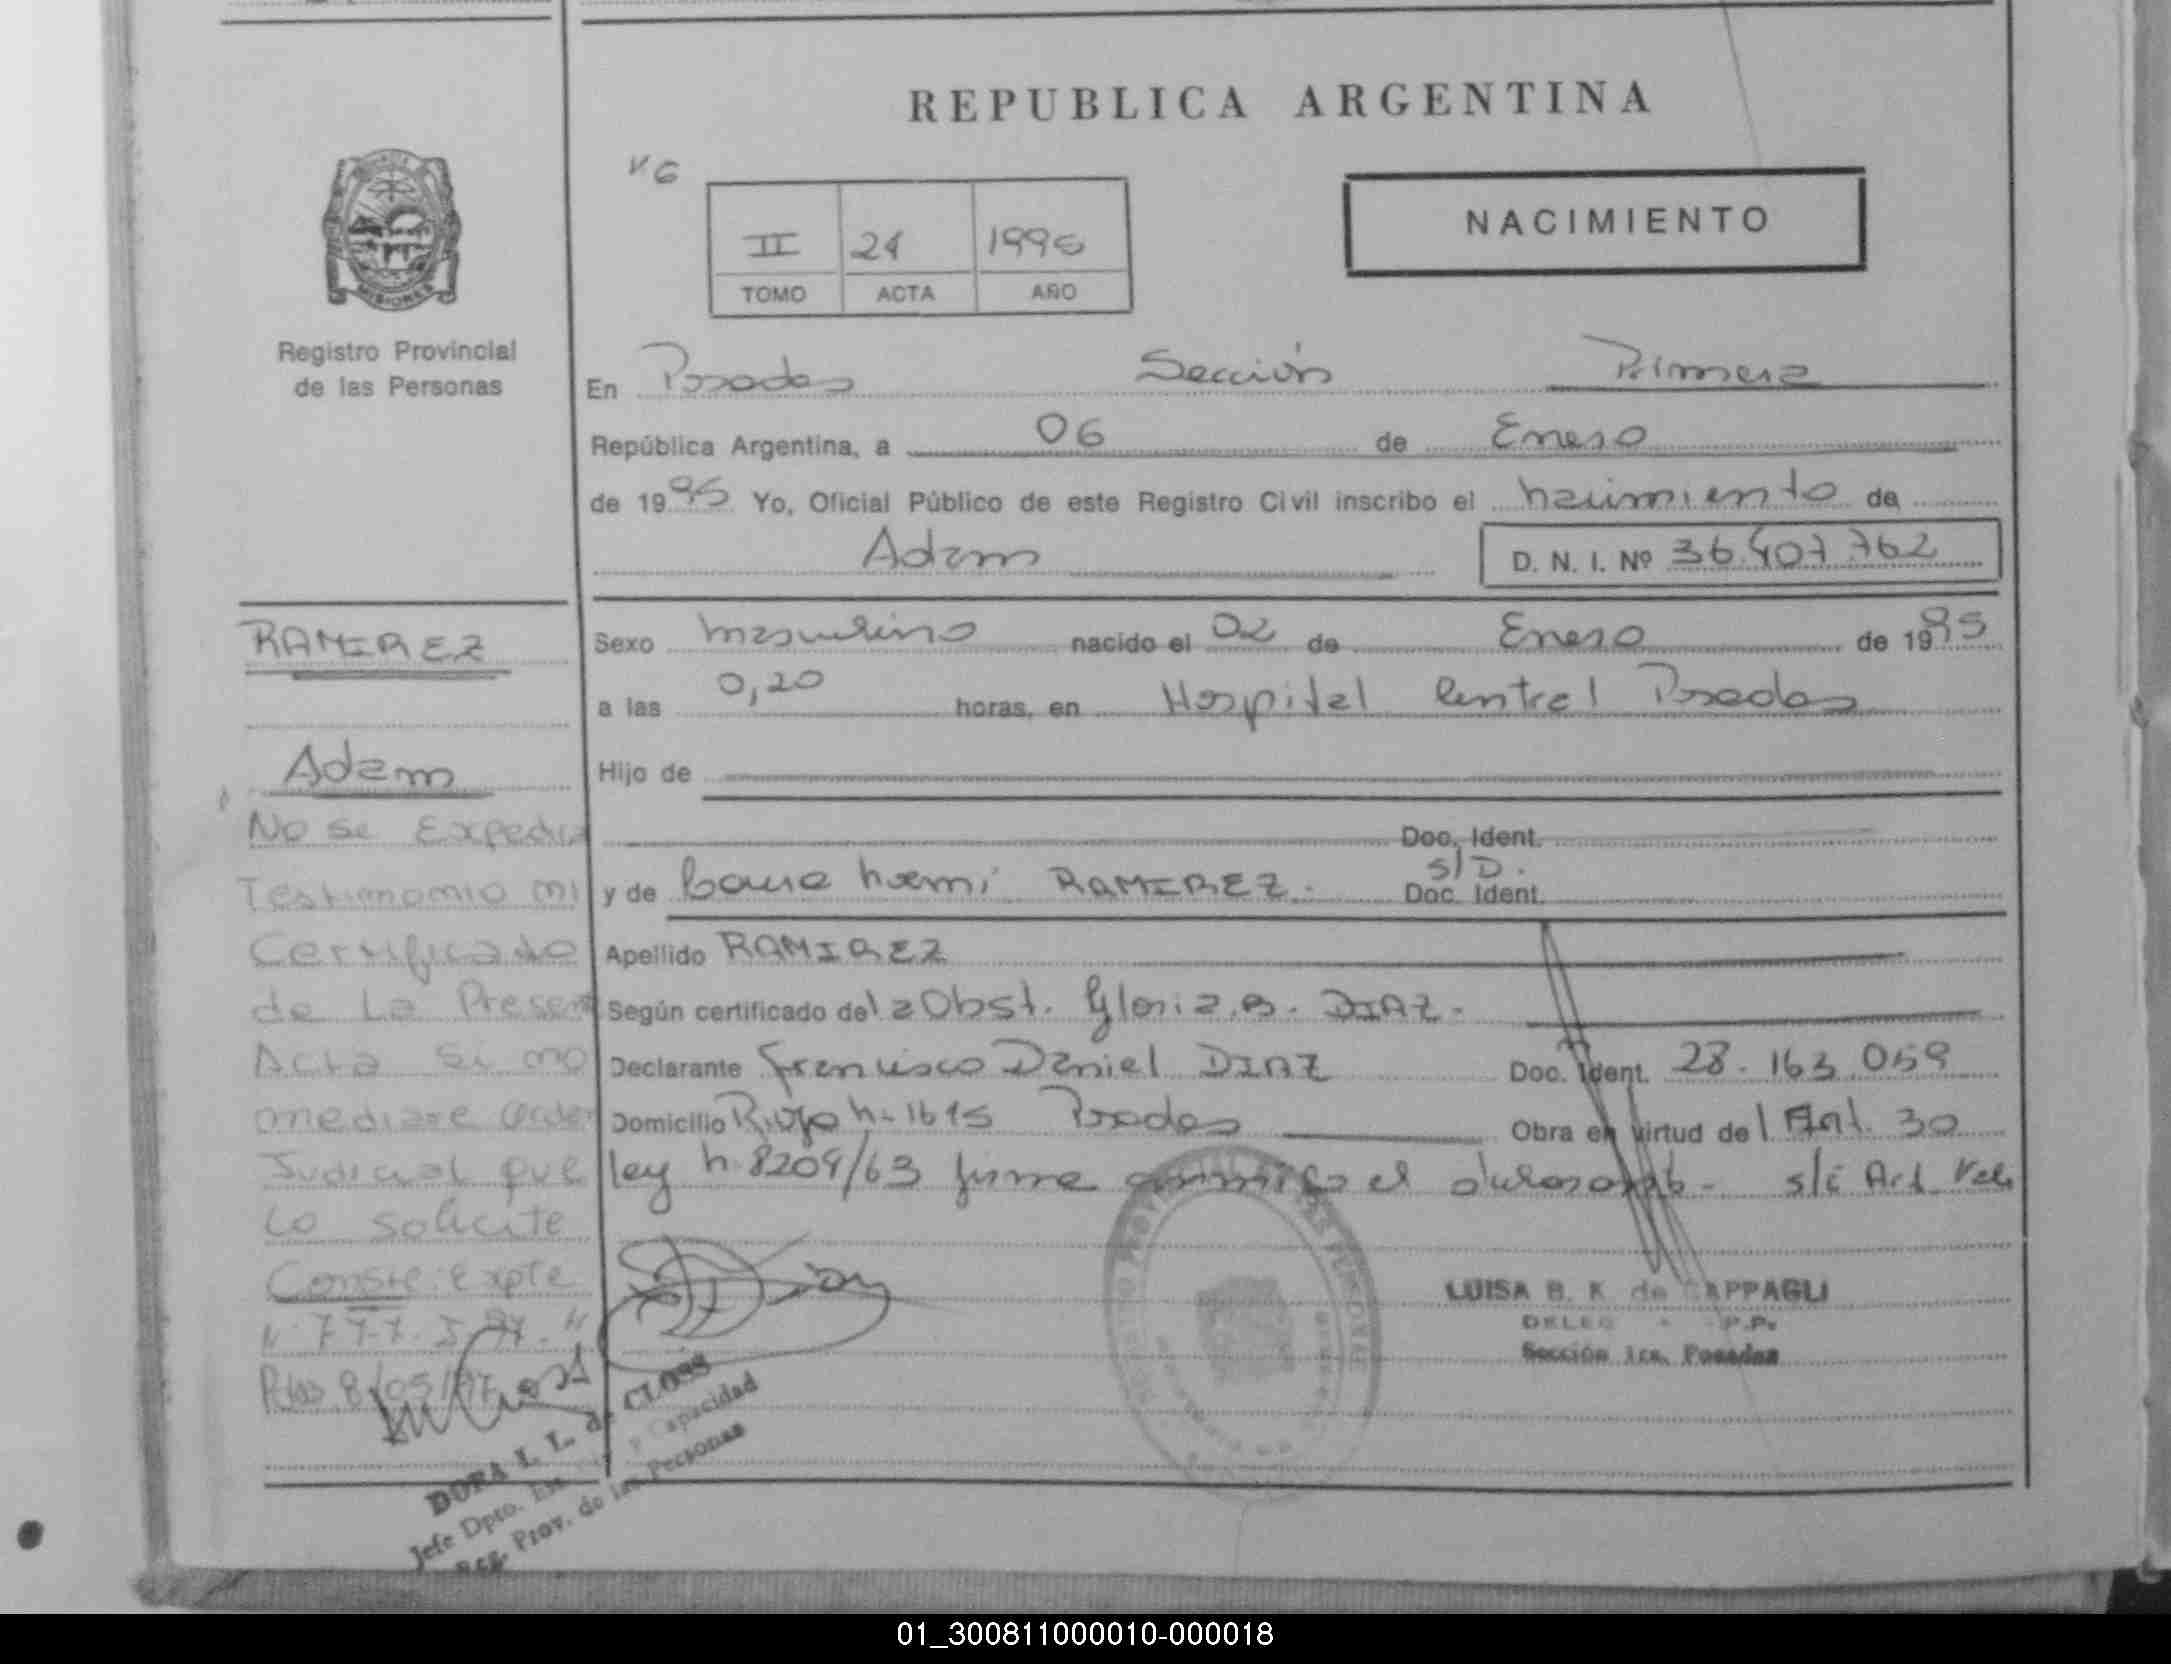 REPUBLICA ARGENTINA
NACIMIENTO
II 24 1995
TOMO ACTA AÑO
MISIONES
Registro Provincial
de las Personas
En Posadas Sección Primera
República Argentina, a 06 de Enero
de 1995 Yo, Oficial Público de este Registro Civil inscribo el nacimiento de
Adam D. N. I. Nº 36.407.762
RAMIREZ
Adam
Sexo masculino nacido el 02 de Enero de 1995
a las 0,20 horas, en Hospital Central Posadas
Hijo de
Doc. Ident.
y de Noemi RAMIREZ. Doc. Ident. S/D.
Apellido RAMIREZ
Según certificado de la Obst. Gloria B. DIAZ.
Declarante Francisco Daniel DIAZ Doc. Ident. 28.163.059
Domicilio Rioja n- 1615 Posadas Obra en virtud del Art. 30
ley n. 8204/63 firma conmigo el declarante - Art
No se Expedirá
Testimonio ni
Certificado
de La Present
Acta si no
mediare orden
Judicial que
Lo solicite
Conste: Expte
Pdas 8/05/97
DORA L. L. de CLOSS
Jefe Dpto. y Capacidad
Reg. Prov. de las Personas
LUISA B. K. de CAPPAGLI
Sección 1ra. Posadas
01_300811000010-000018